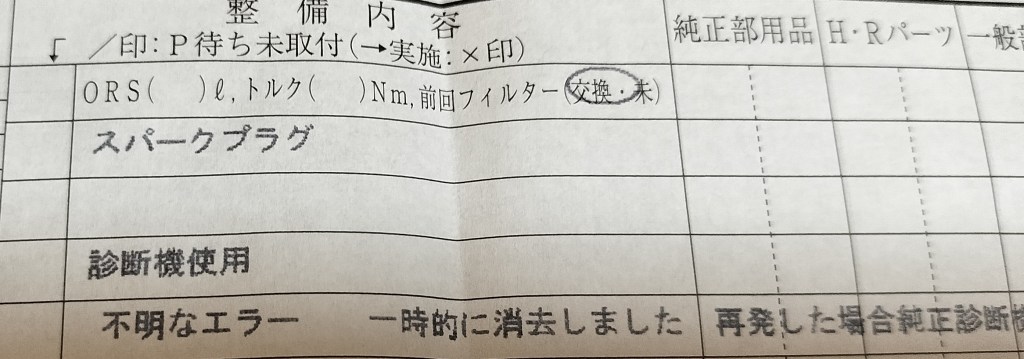 整備内容
/印：P待ち未取付(→実施：×印)
純正部用品 H・Rパーツ 一般
ORS(　)ℓ,トルク(　)Nm,前回フィルター(交換・未)
スパークプラグ
診断機使用
不明なエラー　一時的に消去しました　再発した場合純正診断機